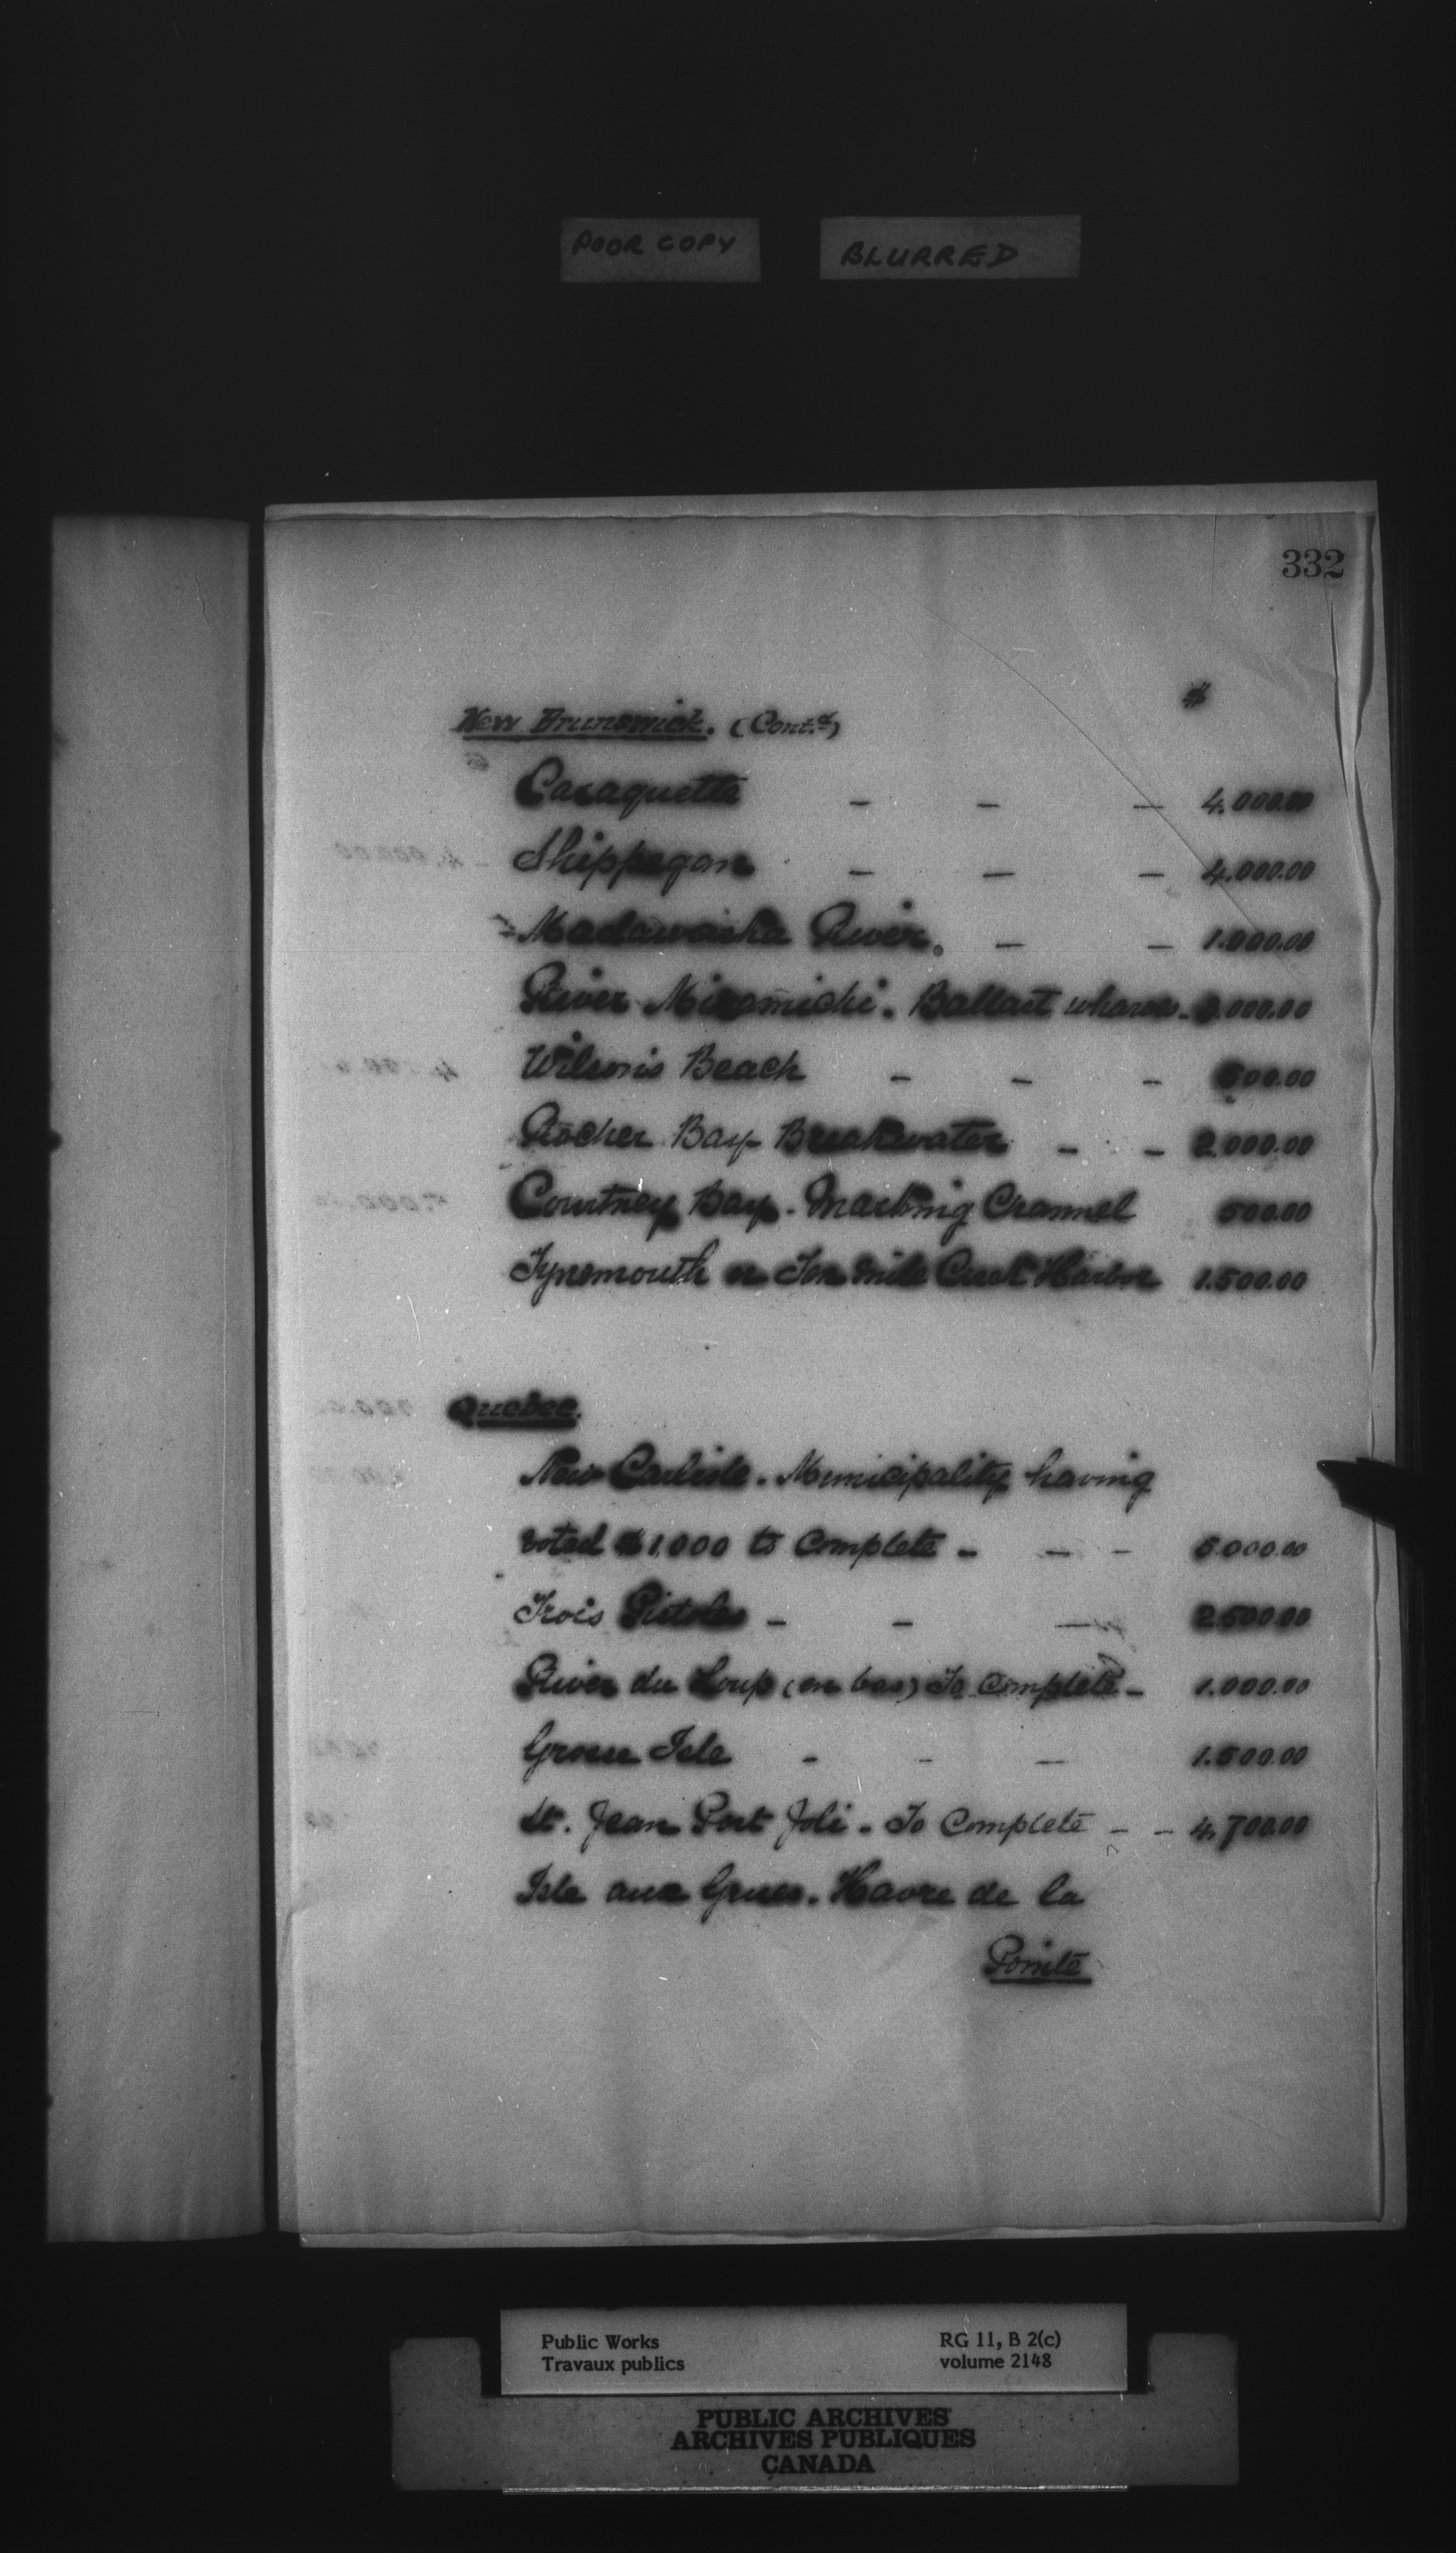 POOR COPY BLURRED
332
$
New Brunswick. (Cont.d)
Caraquette - - - 4.000.00
Shippegan - - - 4.000.00
Madawaska River. - - 1.000.00
River Miramichi. Ballast wharves - .000.00
Wilson's Beach - - - 500.00
Rocher Bay Breakwater - - 2.000.00
Courtney Bay. Marking Channel 500.00
Tynemouth or Ten Mile Creek Harbor 1.500.00
Quebec.
New Carlisle. Municipality having
voted $1.000 to Complete - - - 5.000.00
Trois Pistoles - - - 2.500.00
River du Loup (en bas) To Complete - 1.000.00
Grosse Isle - - - 1.500.00
St. Jean Port Joli - To Complete - - 4.700.00
Isle aux Grues. Havre de la
Pointe
Public Works RG 11, B 2(c)
Travaux publics volume 2148
PUBLIC ARCHIVES
ARCHIVES PUBLIQUES
CANADA